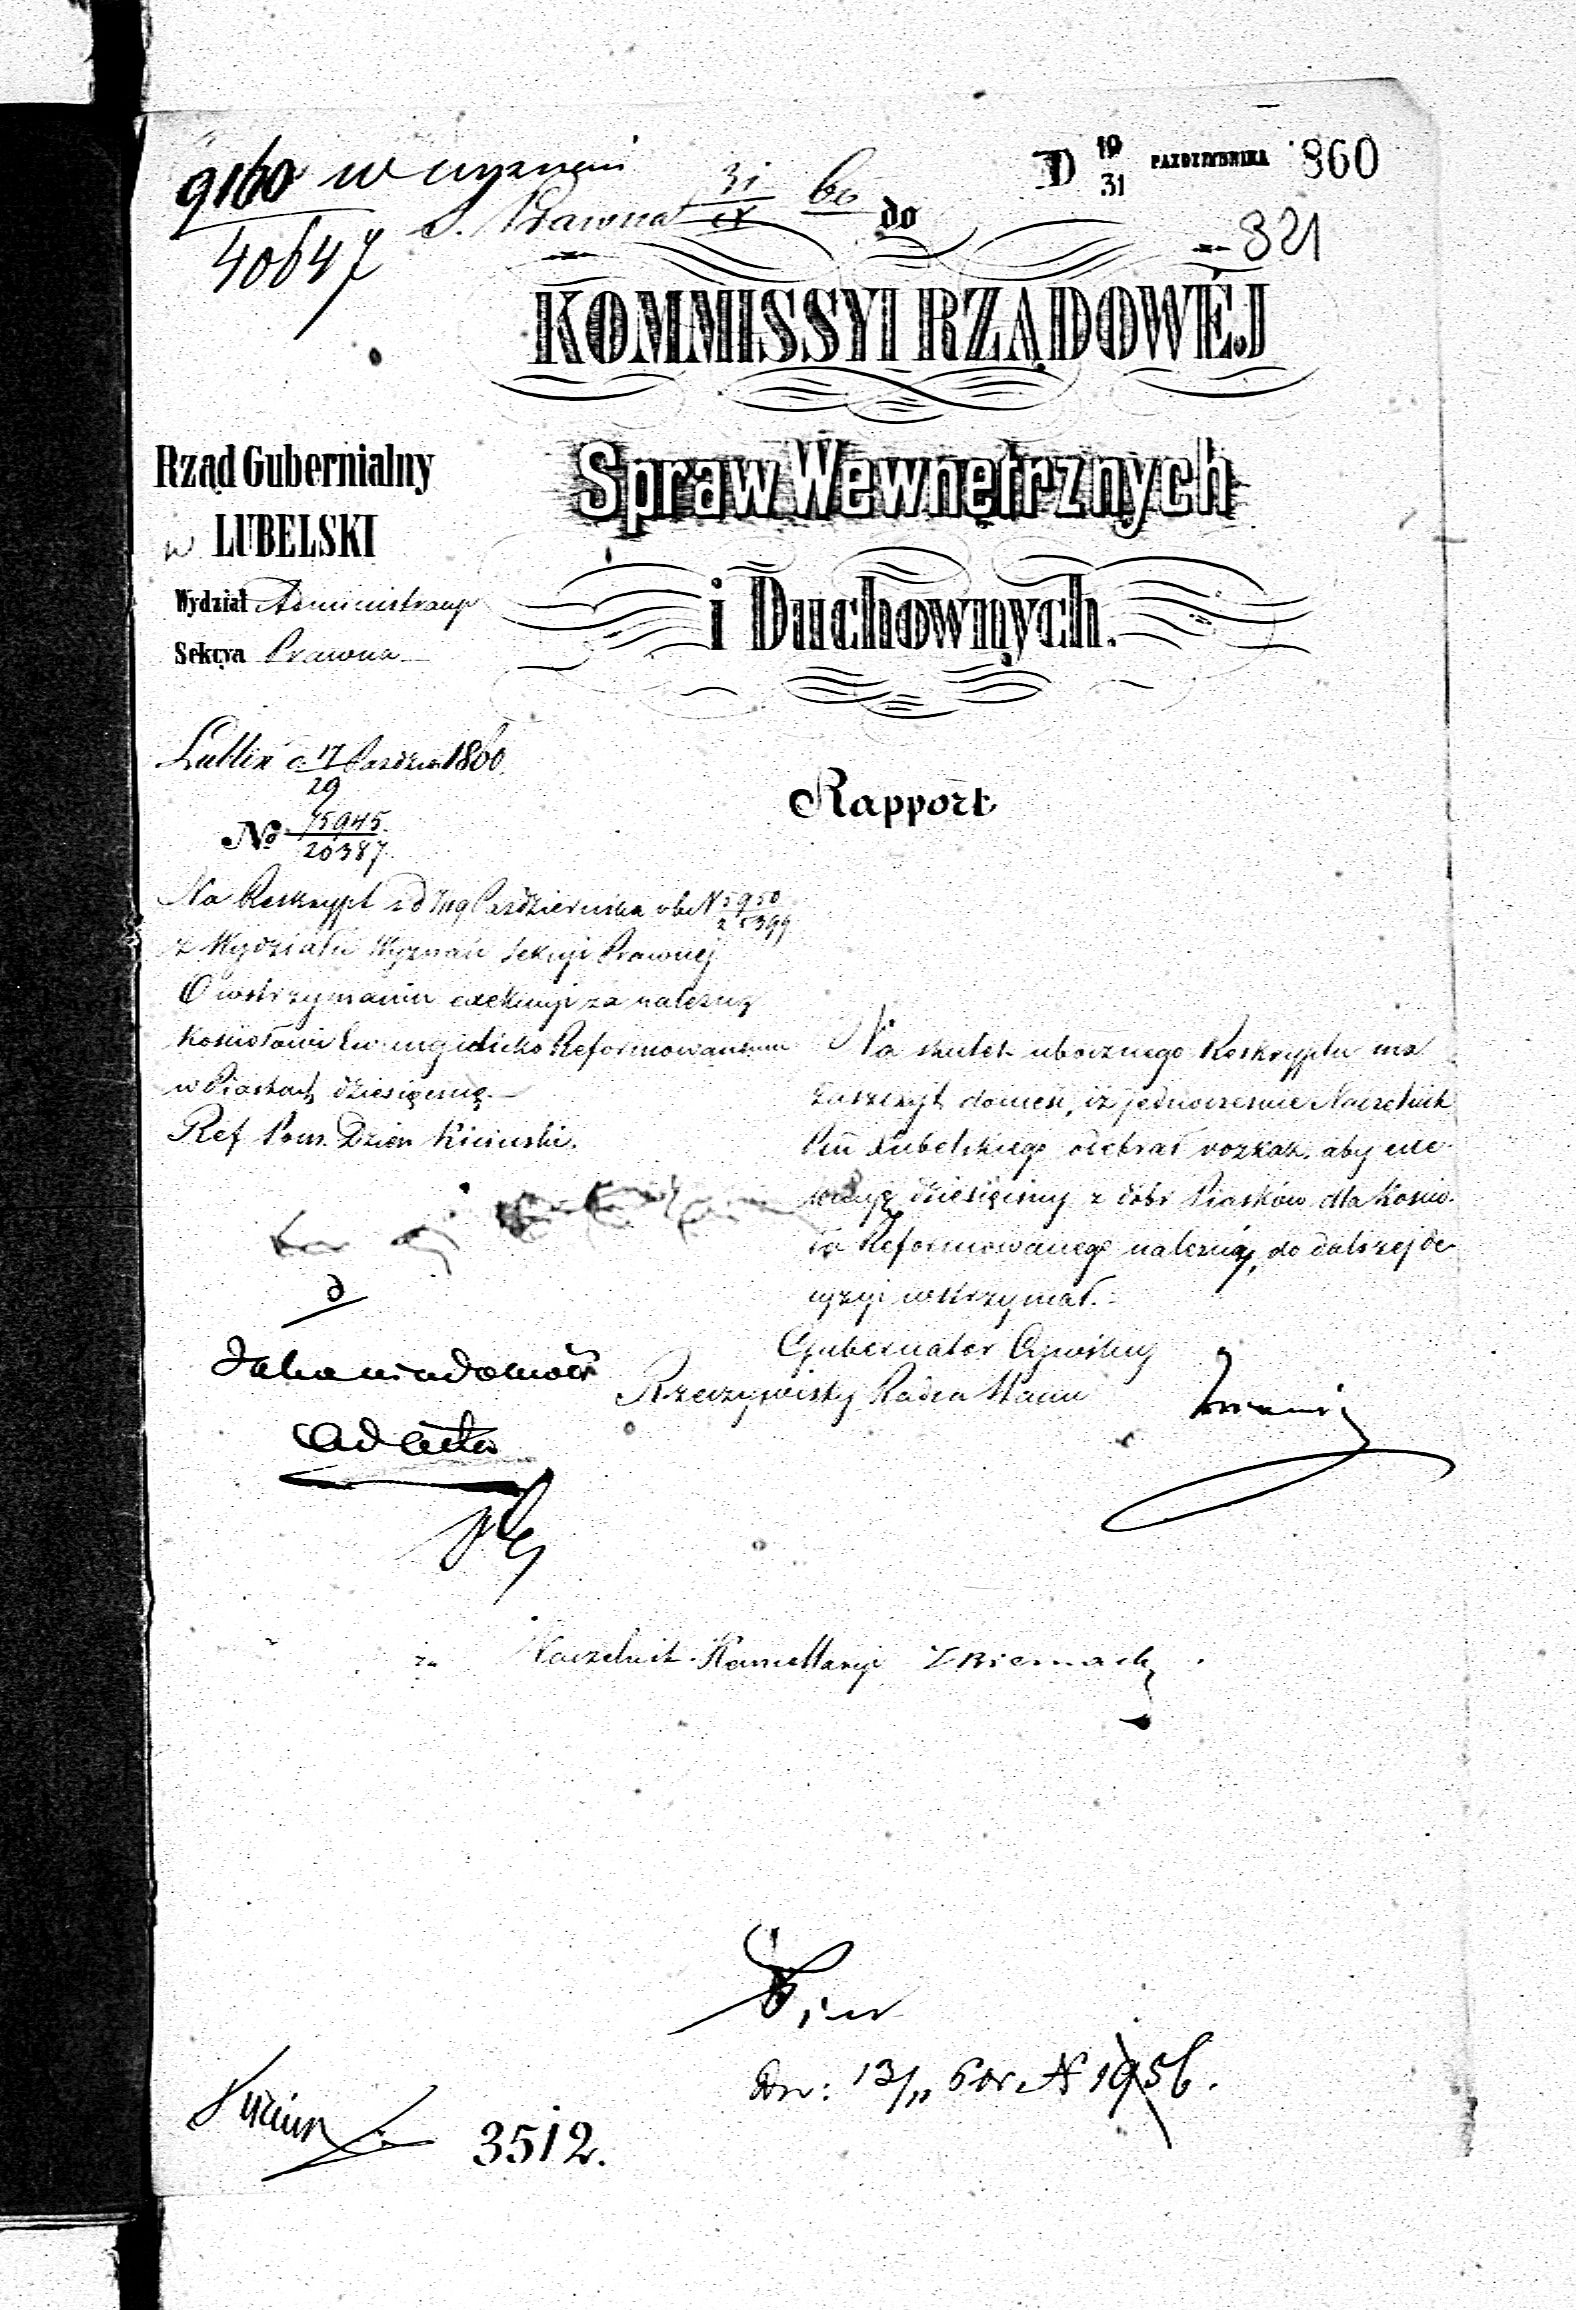 9160 w wyznani
40647
S. Prawna 31/IX 60
D 19/31 PAZDZIERNIKA 860
321
do
KOMMISSYI RZĄDOWÉJ
Spraw Wewnętrznych
i Duchownych.
Rząd Gubernialny
w LUBELSKI
Wydział Administracyi
Sekcya Prawna
Lublin d. 17/29 Paździer 1860.
Rapport
No 75945/20387.
Na Reskrypt z d 7/19 Października rb N 5950/25399
z Wydziału Wyznań Sekcyi Prawnej
O wstrzymaniu exekucyi za należną
Kościołowi Ewangielicko Reformowanemu
w Piaskach dziesięcinę.
Ref Pom. Dzien Kiciński.
Na skutek ubocznego Reskryptu ma
zaszczyt donieść, iż jednocześnie Naczelnik
Ptu Lubelskiego odebrał rozkaz, aby exe-
kucyę dziesięciny z dóbr Piasków dla Kościo-
ła Reformowanego należnéj, do dalszej de-
cyzyi wstrzymał.
Gubernator Cywilny
Rzeczywisty Radca Stanu
d
Jako wiadomość
ad acta
za Naczelnik Kancellaryi
13/11 60r N 1956.
3512.